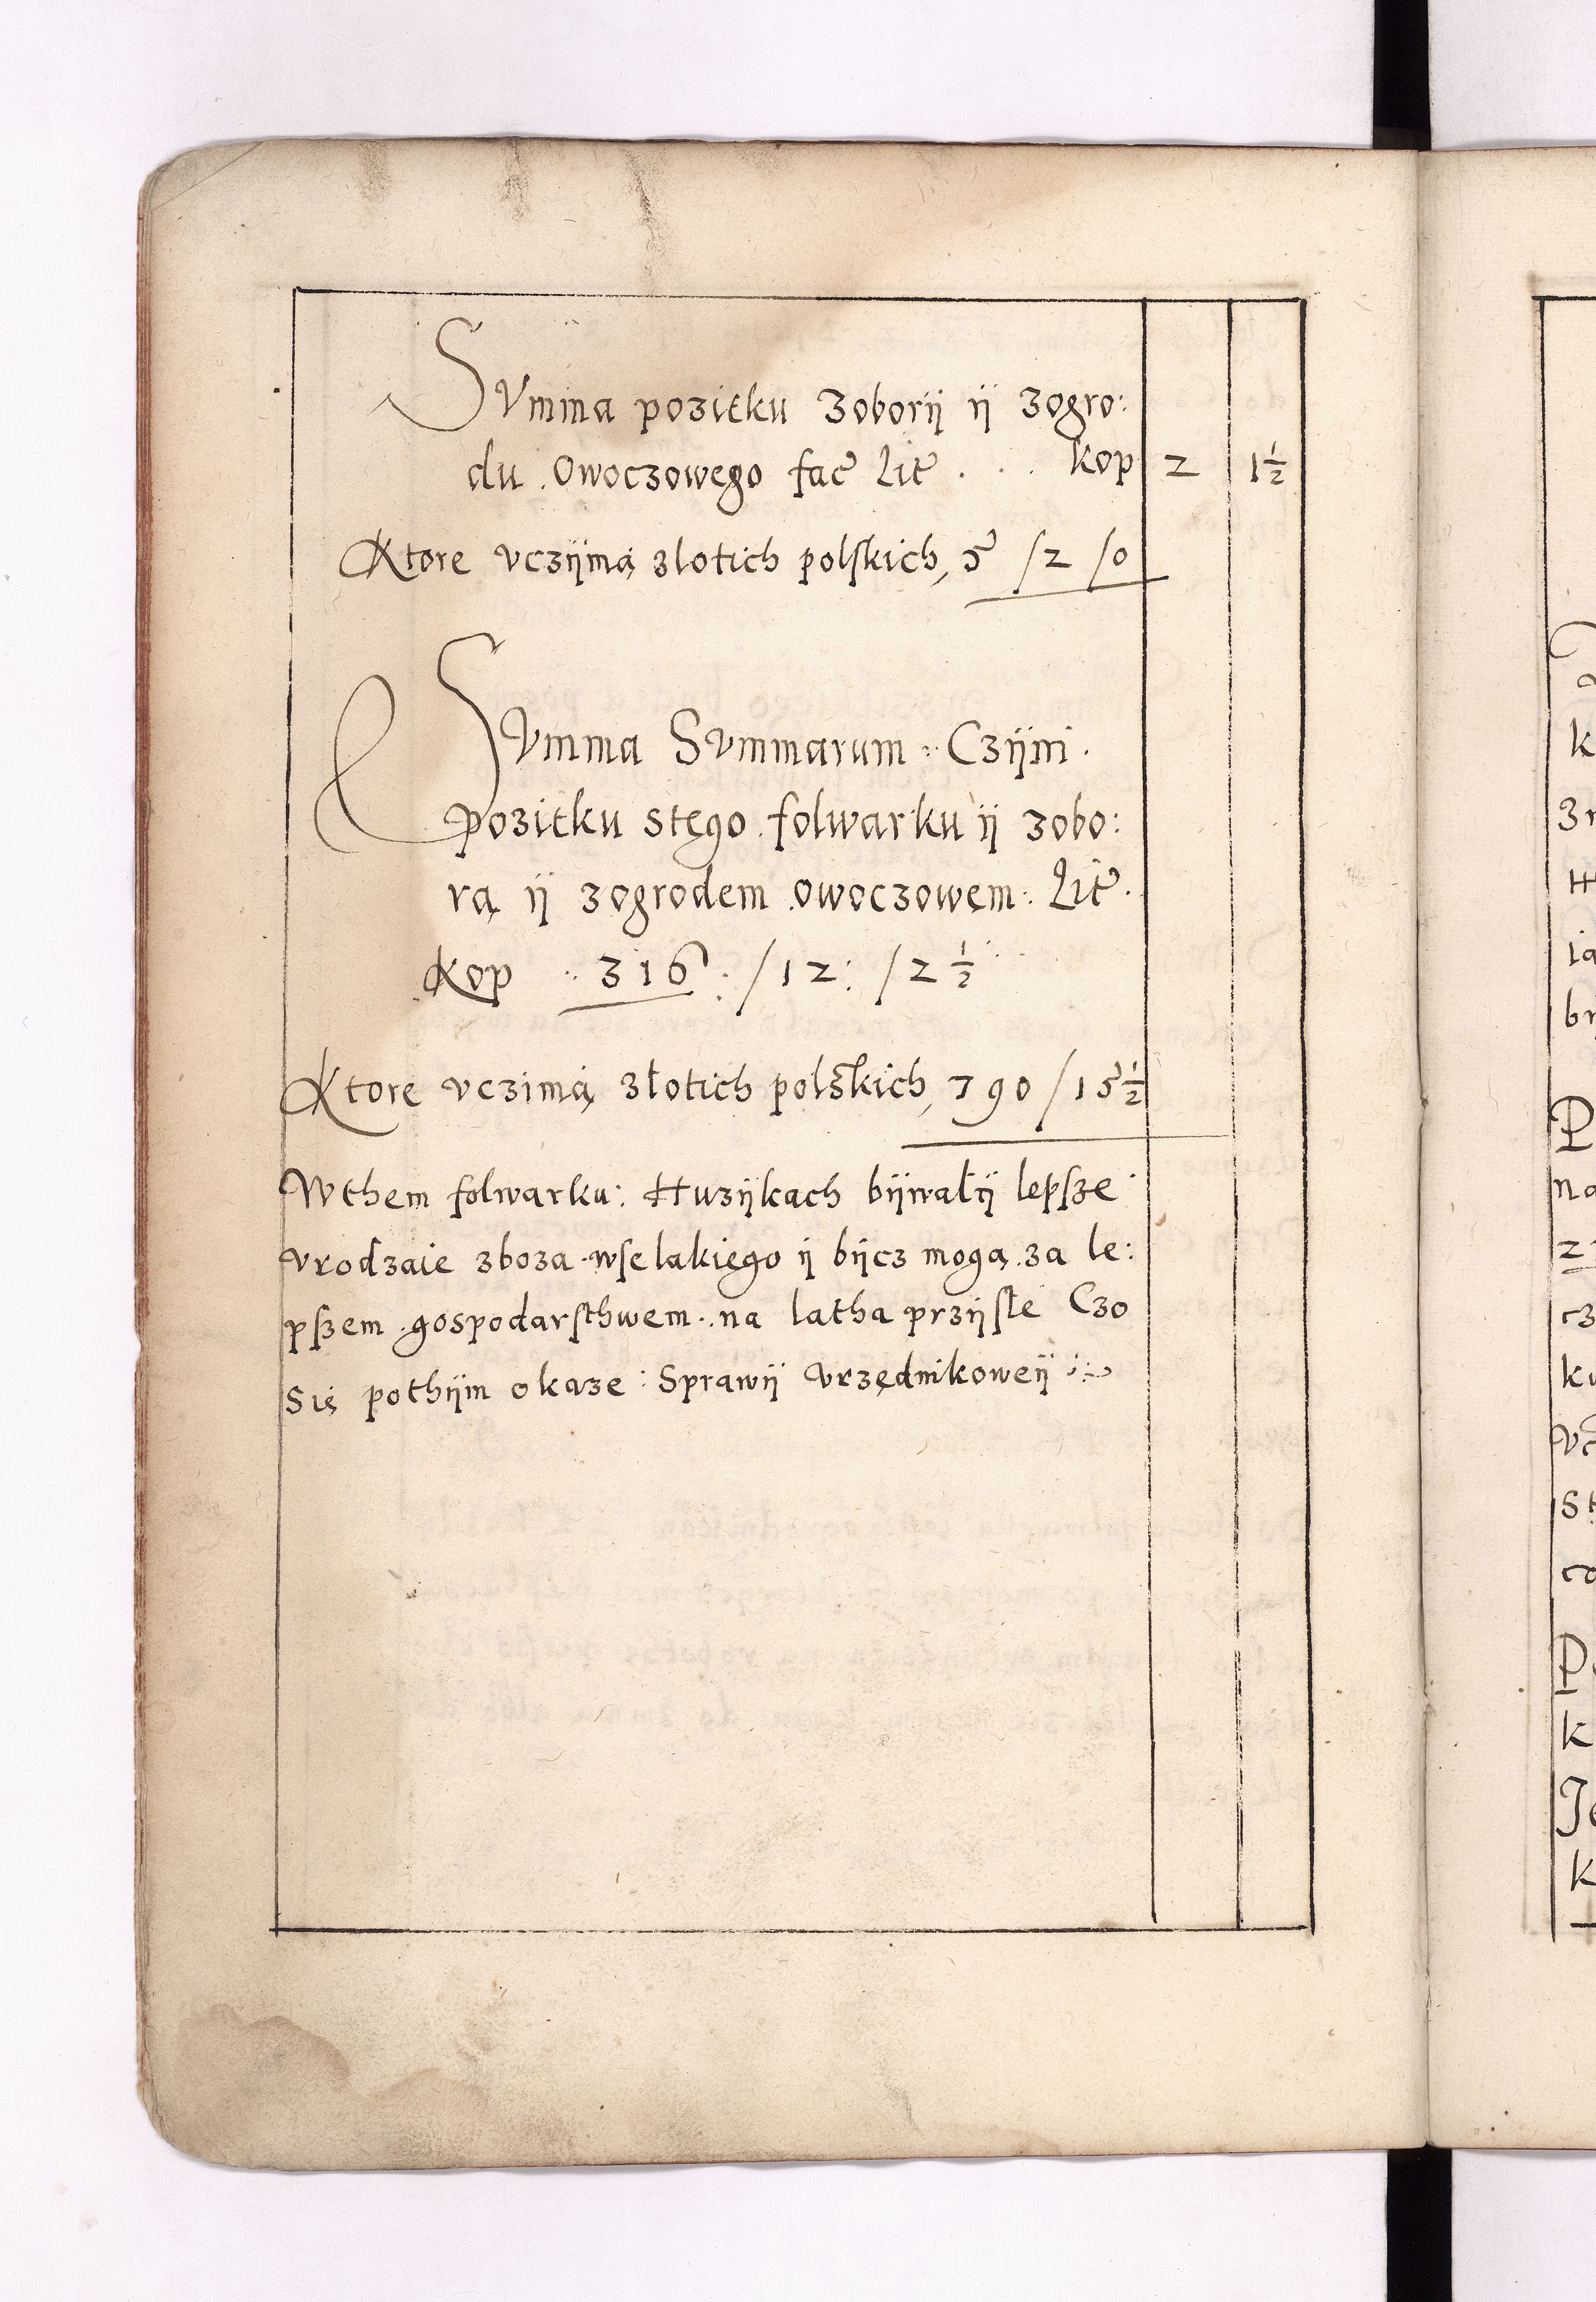 Summa pozitku Zoborÿ ÿ zogro:
du Owoczowego fac̃ Lit̃ . . . kop 2 1½
Ktore vczÿmą zlotich polskich, 5 /2 /0
Summa Summarum : Czÿni .
pozitku stego folwarku ÿ zobo:
rą ÿ zogrodem owoczowęm : Lit̃ .
Kop .. 316 : /12 : /2½
Ktorę vczimą złotich polskich, 790 /15½
Wthem folwarku : Huzÿkach bÿwalÿ lepsze
vrodzaie zboza wselakięgo ÿ bÿcz mogą za le:
pszem gospodarsthwem .. na latha przÿsłe Czo
Się pothÿm okaze : Sprawÿ vrzędnikoweÿ
k
zn
H
ia
br
P
na
cz
ku
vc
st
P
k
k